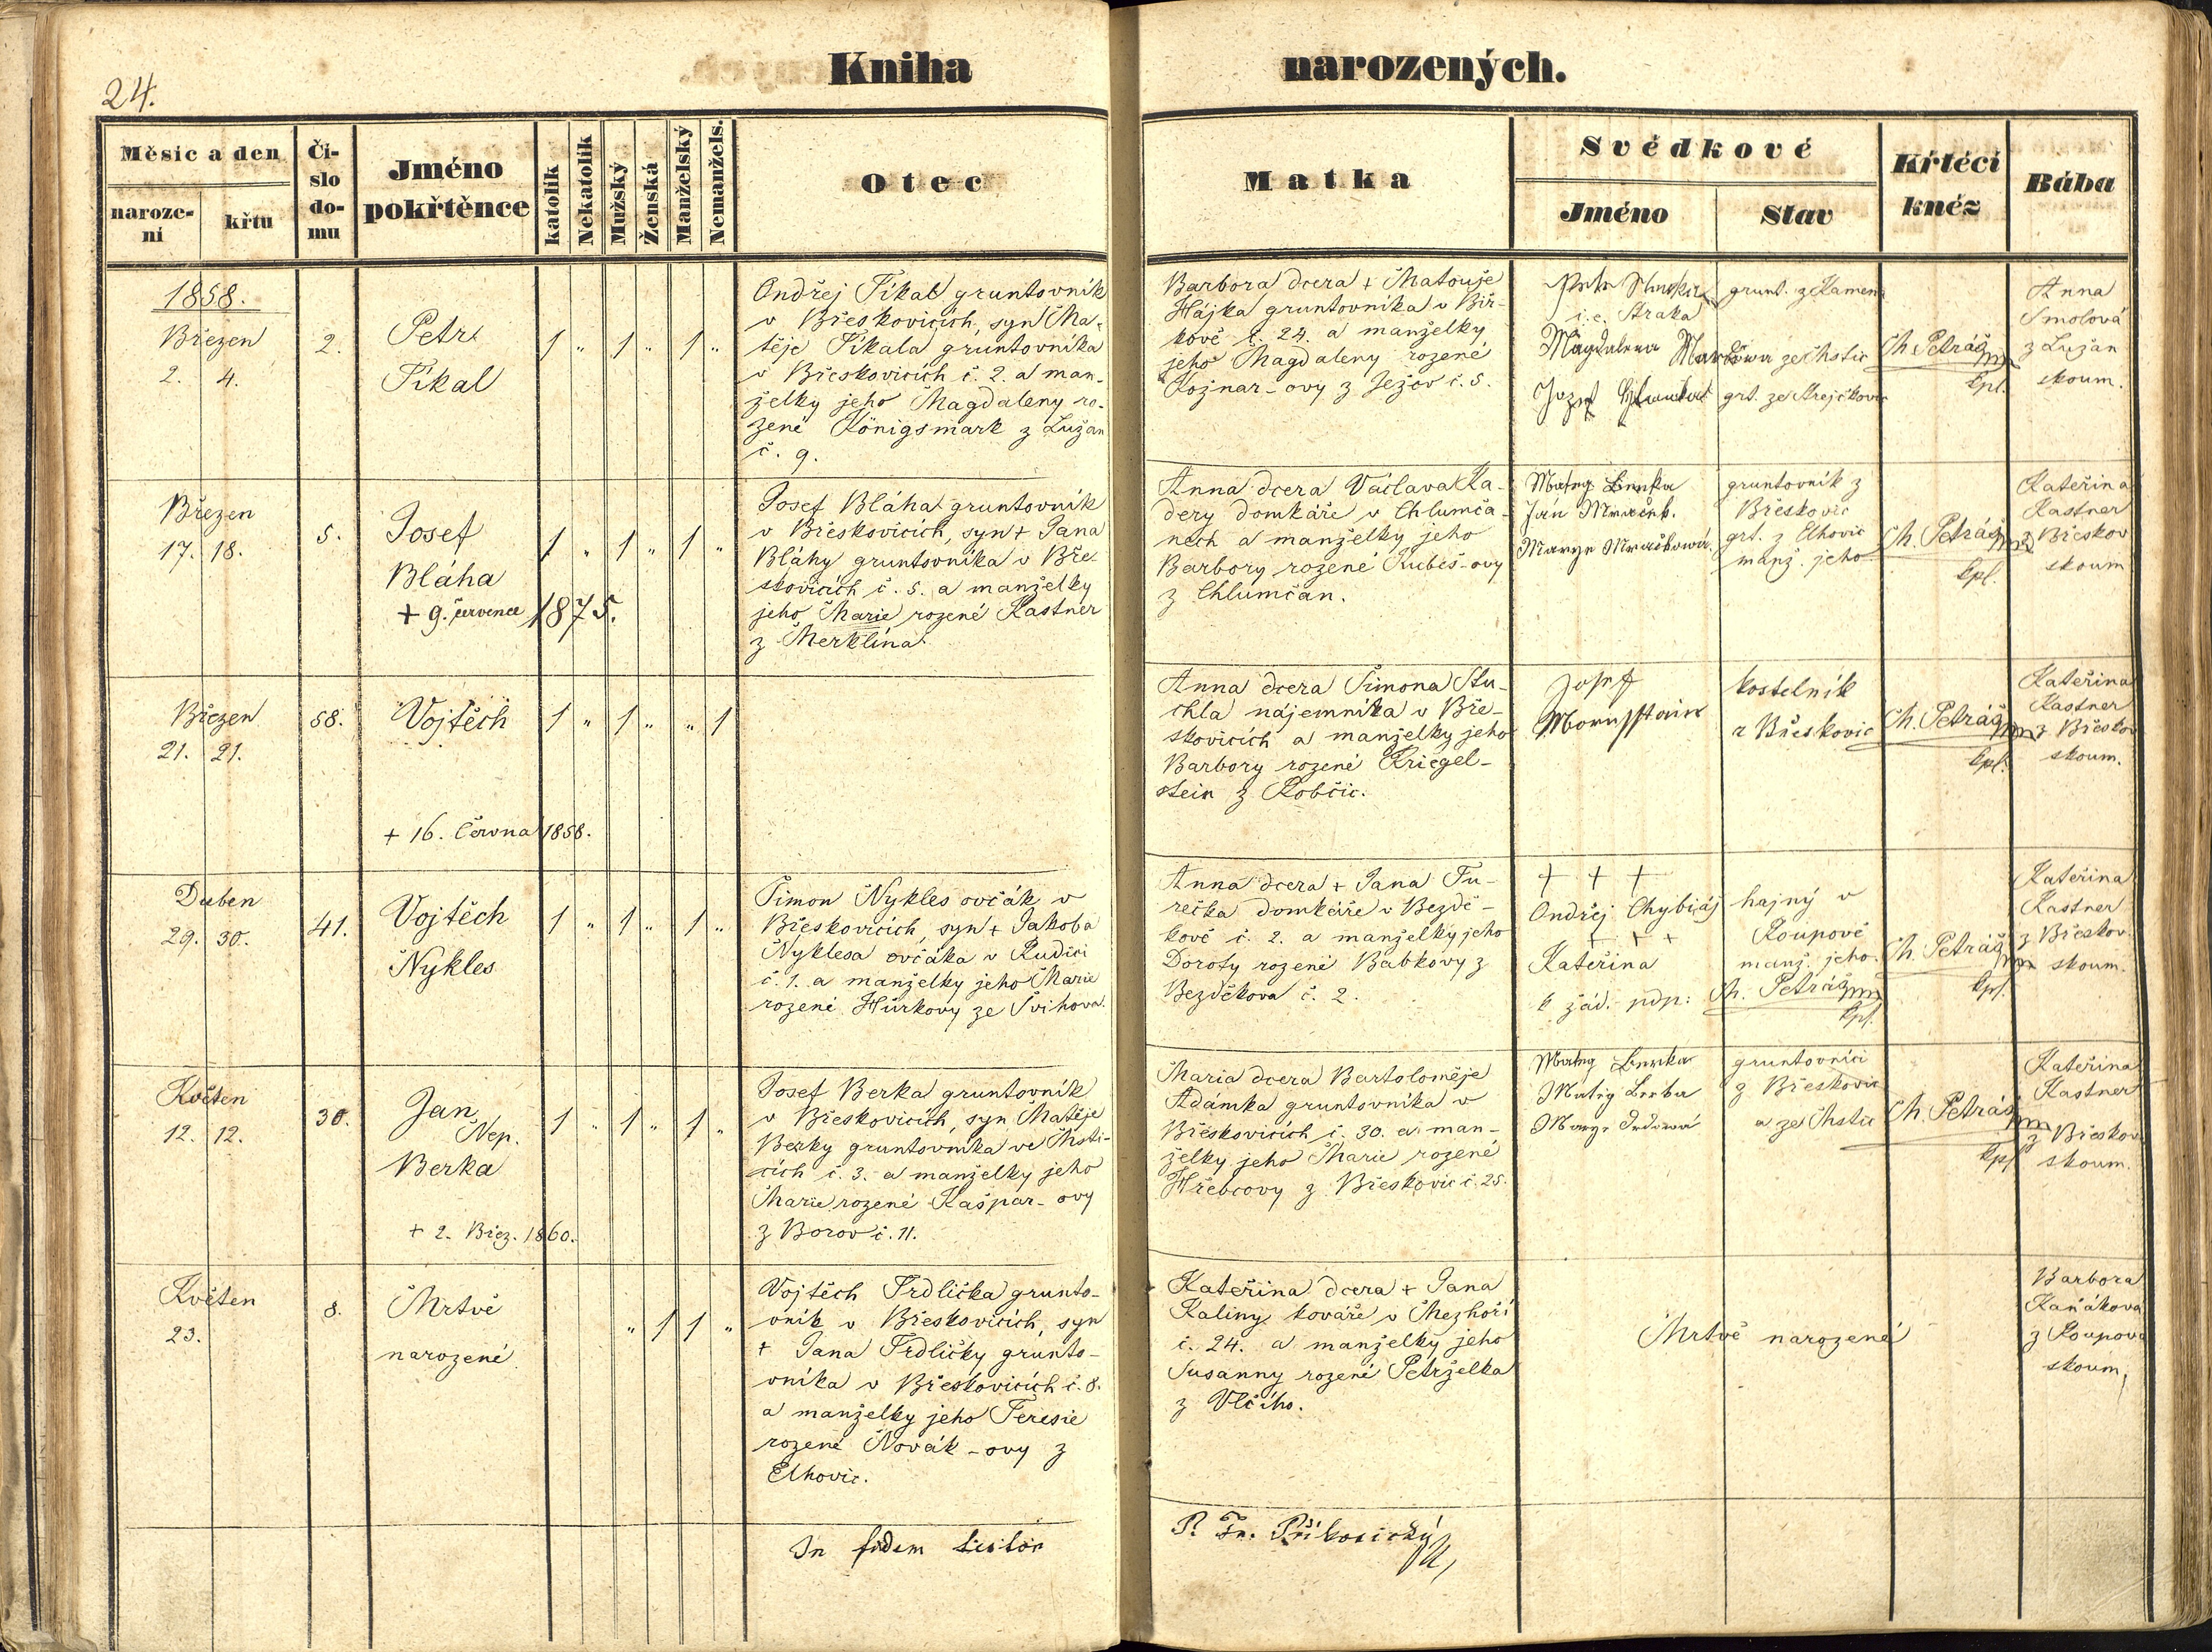 24.
Kniha
narozených.
Měsíc a den
naroze-
ní
křtu
Čí-
slo
do-
mu
Jméno
pokřtěnce
katolík
Nekatolík
Mužský
Ženská
Manželský
Nemanžels.
Otec
Matka
Svědkové
Jméno
Stav
Křtěcí
kněz
Bába
1858.
Březen
2. 4.
2.
Petr
Fikal
1 „ 1 „ 1 „
Ondřej Fikal gruntovník
v Břeskovicích, syn Ma-
těje Fikala gruntovníka
v Břeskovicích č. 2. a man-
želky jeho Magdaleny ro-
zené Königsmark z Lužan
č. 9.
Barbora dcera + Matouje
Hájka gruntovníka v Bir-
kově č. 24. a manželky
jeho Magdaleny rozené
Kožnar-ovy z Ježov č. 5.
i.e. Straka
Magdalena
Jozef
grunt. z Kamen
ze Mstic
grt. ze Strejčkovic
Ch. Petráš mp
kpl.
Anna
Smolová
z Lužan
skoum.
Březen
17. 18.
5.
Josef
Bláha
+ 9. července 1875.
1 „ 1 „ 1 „
Josef Bláha gruntovník
v Břeskovicích, syn + Jana
Bláhy gruntovníka v Bře-
skovicích č. 5. a manželky
jeho Marie rozené Kastner
z Merklína.
Anna dcera Václava Ka-
dery domkáře v Chlumča-
nech a manželky jeho
Barbory rozené Kubeš-ovy
z Chlumčan.
Jan Mraček.
Marye Mračkowá.
gruntovník z
Břeskovic
grt. z Elhovic
manž. jeho
Ch. Petráš mp
kpl.
Kateřina
Kastner
z Břeskov
skoum
Březen
21. 21.
58.
Vojtěch
+ 16. Června 1858.
1 „ 1 „ „ 1
Anna dcera Šimona Stu-
chla nájemníka v Bře-
skovicích a manželky jeho
Barbory rozené Kriegel-
stein z Robčic.
Josef
kostelník
z Břeskovic
Ch. Petráš mp
kpl.
Kateřina
Kastner
z Břeskov
skoum.
Duben
29. 30.
41.
Vojtěch
Nykles
1 „ 1 „ 1 „
Šimon Nykles ovčák v
Břeskovicích, syn + Jakoba
Nyklesa ovčáka v Rudici
č. 1. a manželky jeho Marie
rozené Hůrkovy ze Švihova.
Anna dcera + Jana Tu-
rečka domkáře v Bezdě-
kově č. 2. a manželky jeho
Doroty rozené Babkovy z
Bezděkova č. 2.
+ + +
Ondřej Chybiáj
+ + +
Kateřina
k žád. pdp: Ch. Petráš mp
kpl.
hajný v
Roupově
manž. jeho.
Ch. Petráš mp
kpl.
Kateřina
Kastner
z Břeskov.
skoum.
Květen
12. 12.
30.
Jan
Nep.
Berka
+ 2. Břez. 1860.
1 „ 1 „ 1 „
Josef Berka gruntovník
v Břeskovicích, syn Matěje
Berky gruntovníka ve Msti-
cích č. 3. a manželky jeho
Marie rozené Kašpar-ovy
z Borov č. 11.
Maria dcera Bartoloměje
Adámka gruntovníka v
Břeskovicích č. 30. a man-
želky jeho Marie rozené
Hřebcovy z Břeskovic č. 25.
gruntovníci
z Břeskovic
a ze Mstic
Ch. Petráš mp
kpl
Kateřina
Kastner
z Břeskov
skoum.
Květen
23.
8.
Mrtvě
narozené
„ 1 1 „
Vojtěch Trdlička grunto-
vník v Břeskovicích, syn
+ Jana Trdličky grunto-
vníka v Břeskovicích č. 8.
a manželky jeho Teresie
rozené Novák-ovy z
Elhovic.
Kateřina dcera + Jana
Kaliny kováře v Mezhoří
č. 24. a manželky jeho
Susanny rozené Petrželka
z Vlčího.
Mrtvě narozené
Barbora
Kaňáková
z Roupova
skoum,
In fidem
P. Fr. Přibosický